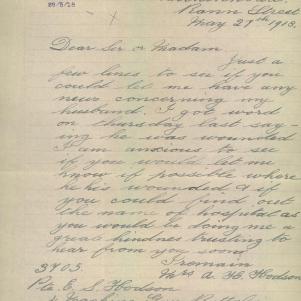 28/5/18
Rann Street
May 27th 1918.
Dear Sir or Madam
Just a
few lines to see if you
could let me have any
news concerning my
husband. I got word
on thursday last say-
ing he was wounded
I am anxious to see
if you would let me
know if possible where
he his wounded & if
you could find out
the name of hospital as
you would be doing me a
great kindness trusting to
hear from you soon
I remain
Mrs A. E. Hodson
3905.
Pte E. S. Hodson
Machine Gun